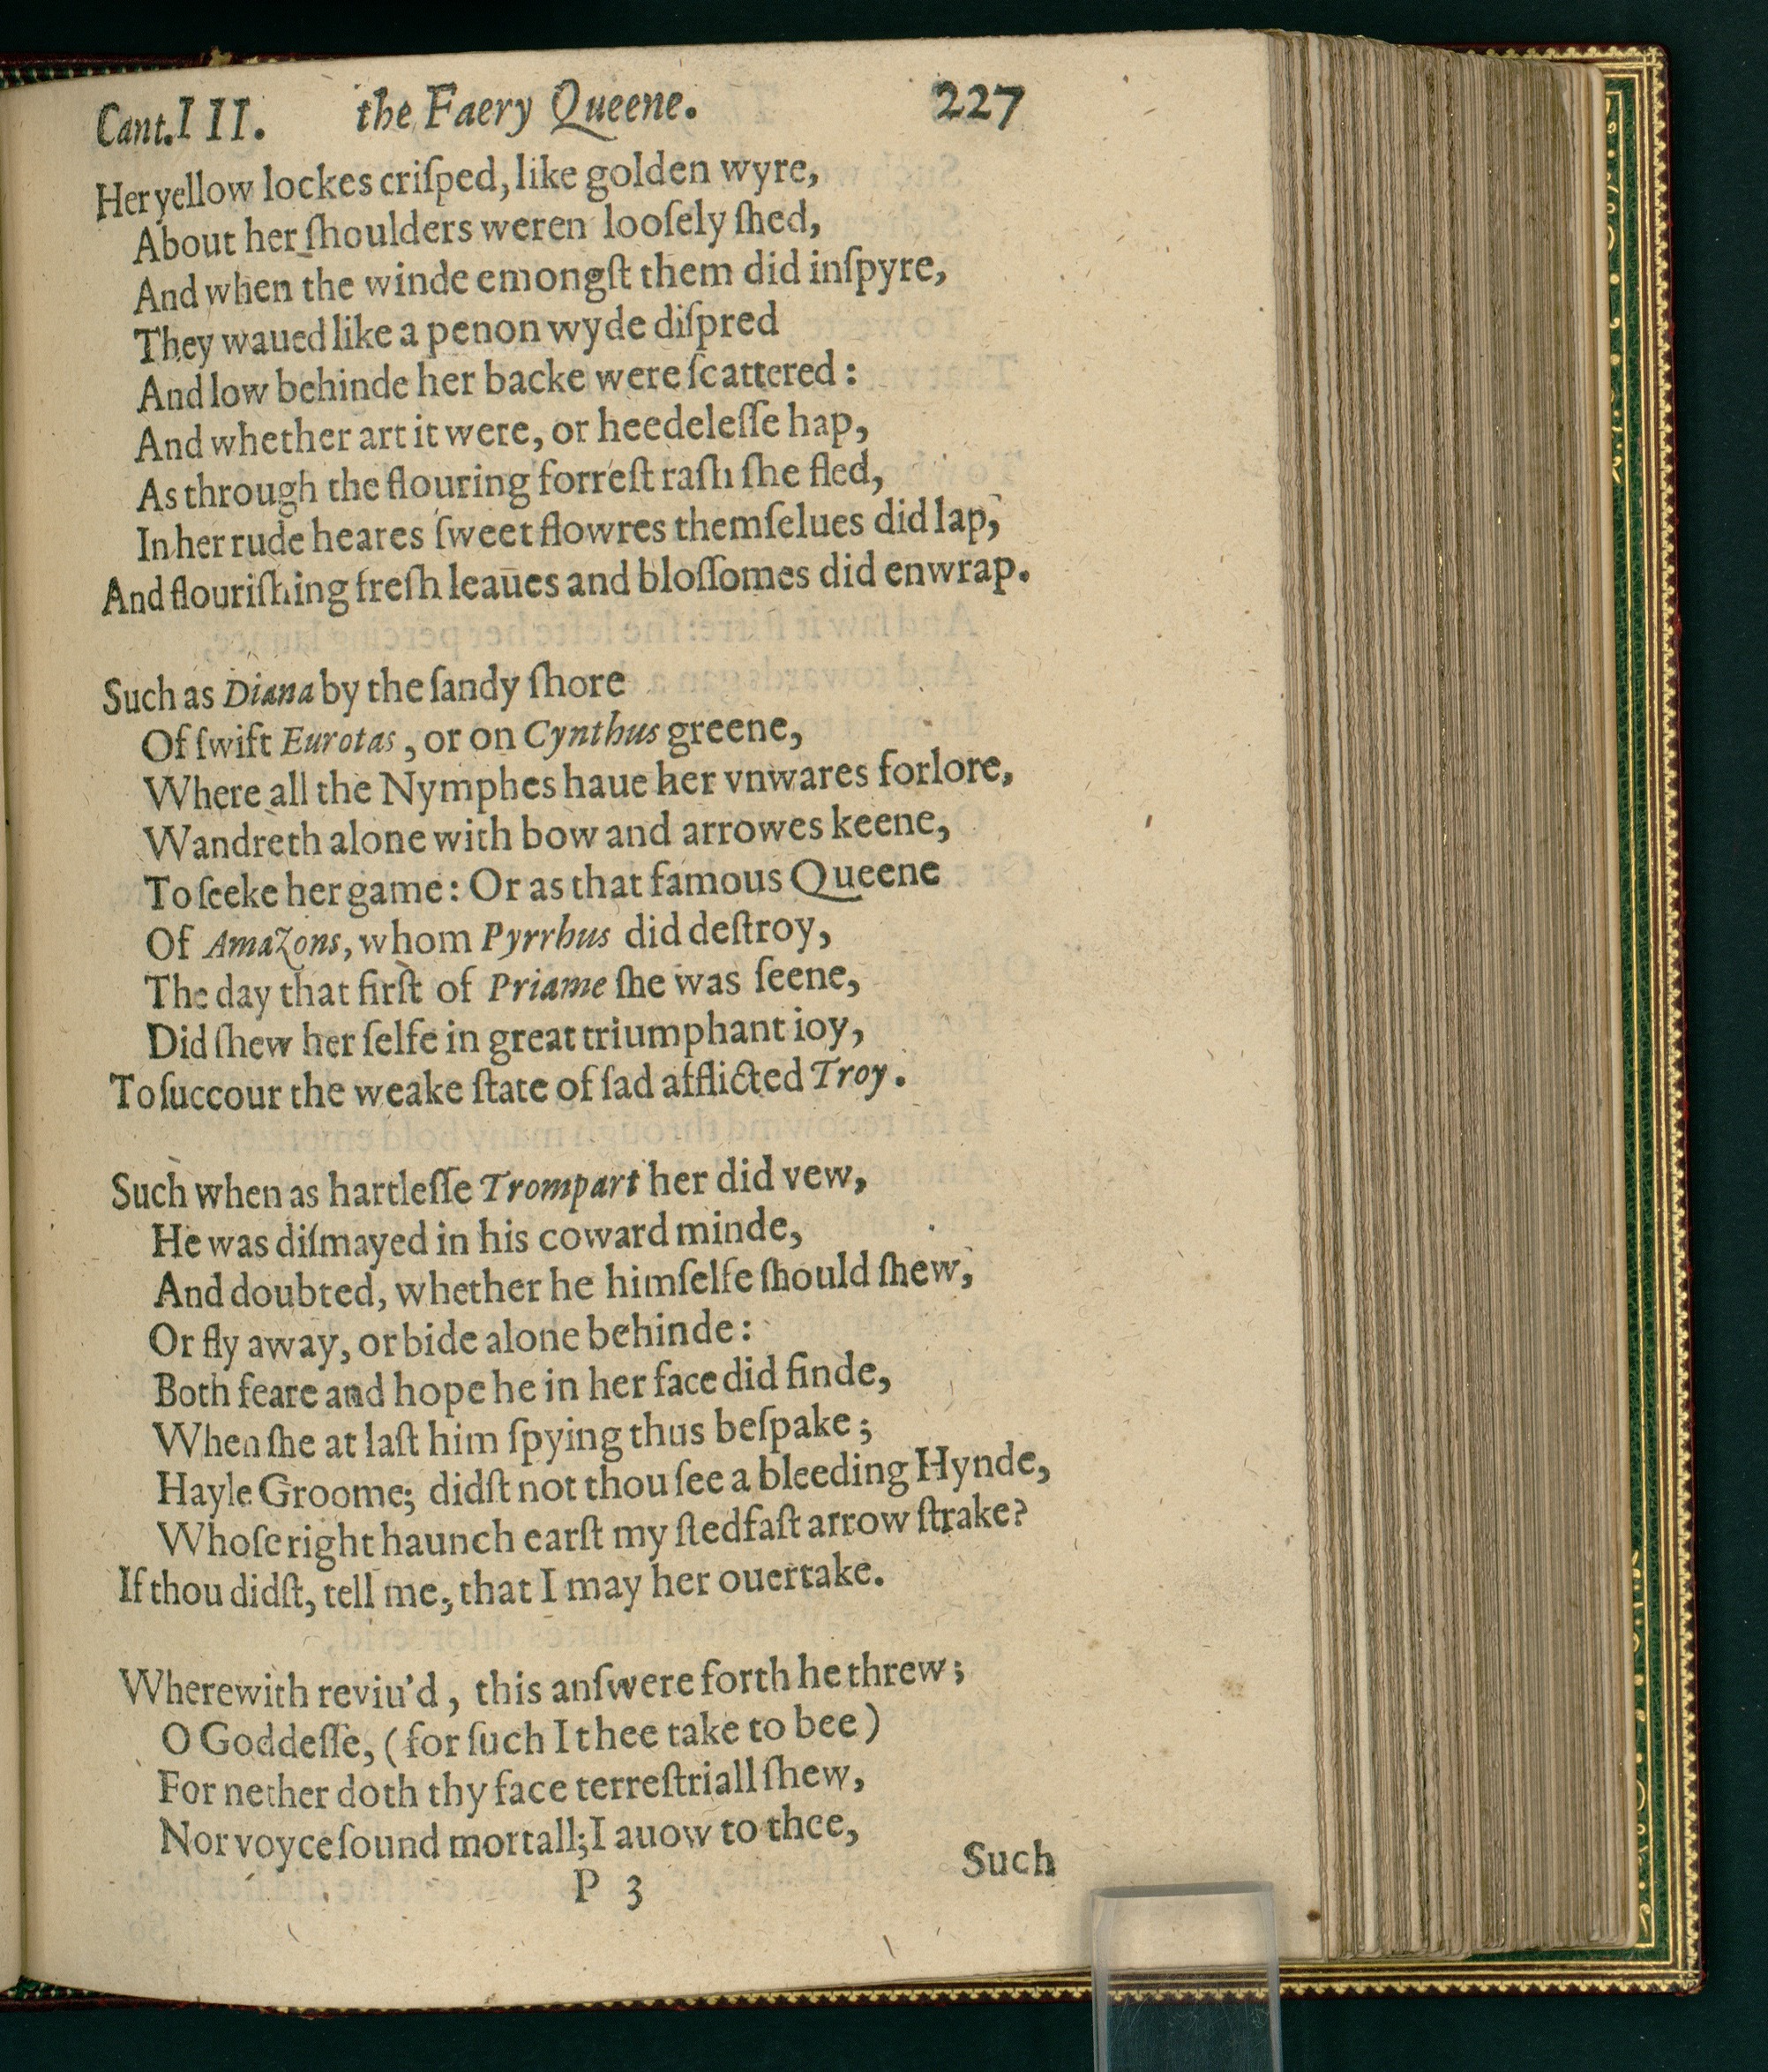 Cant. III. the Faery Queene. 227
Her yellow lockes criſped, like golden wyre,
About her ſhoulders weren looſely ſhed,
And when the winde emongſt them did inſpyre,
They waued like a penon wyde diſpred
And low behinde her backe were ſcattered:
And whether art it were, or heedeleſſe hap,
As through the flouring forreſt raſh ſhe fled,
In her rude heares ſweet flowres themſelues did lap,
And flouriſhing freſh leaues and bloſſomes did enwrap.
Such as Diana by the ſandy ſhore
Of ſwift Eurotas, or on Cynthus greene,
Where all the Nymphes haue her vnwares forlore,
Wandreth alone with bow and arrowes keene,
To ſeeke her game: Or as that famous Queene
Of Amazons, whom Pyrrhus did deſtroy,
The day that firſt of Priame ſhe was ſeene,
Did ſhew her ſelfe in great triumphant ioy,
To ſuccour the weake ſtate of ſad afflicted Troy.
Such when as hartleſſe Trompart her did vew,
He was diſmayed in his coward minde,
And doubted, whether he himſelfe ſhould ſhew,
Or fly away, or bide alone behinde:
Both feare and hope he in her face did finde,
When ſhe at laſt him ſpying thus beſpake;
Hayle Groome; didſt not thou ſee a bleeding Hynde,
Whoſe right haunch earſt my ſtedfaſt arrow ſtrake?
If thou didſt, tell me, that I may her ouertake.
Wherewith reviu'd, this anſwere forth he threw;
O Goddeſſe, (for ſuch I thee take to bee)
For nether doth thy face terreſtriall ſhew,
Nor voyce ſound mortall; I auow to thee,
P 3 Such